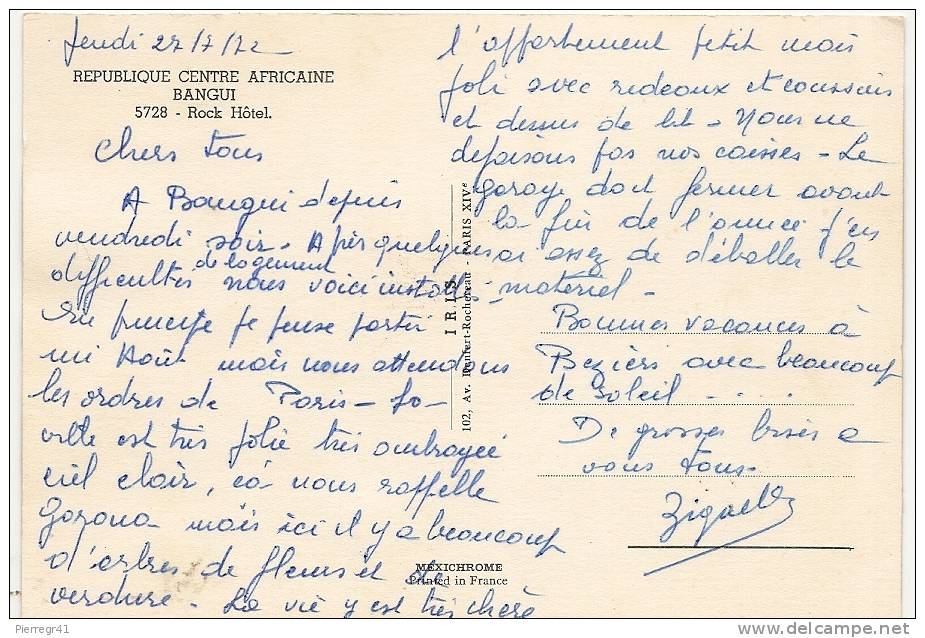 Jeudi 27/7/72
REPUBLIQUE CENTRE AFRICAINE
BANGUI
5728 - Rock Hôtel.
Chers tous
A Bangui depuis
vendredi soir - Après quelques
difficultés de logement nous voici installés
En principe je pense partir
mi Août mais nous attendons
les ordres de Paris - La
ville est très jolie très ombragée
ciel clair, ça nous rappelle
mais ici il y a beaucoup
d'arbres de fleurs et de
verdure - La vie y est très chère
l'appartement petit mais
joli avec rideaux et coussins
et dessus de lit - Nous ne
defaisons pas nos caisses - Le
garage doit fermer avant
la fin de l'année j'en
ai assez de déballer le
matériel -
Bonnes vacances à
Beziers avec beaucoup
de soleil - . . .
De grosses bises a
vous tous -
IRIS
102, Av. Denfert-Rochereau - PARIS XIVe
MEXICHROME
Printed in France
Pierregr41
delcampe.net